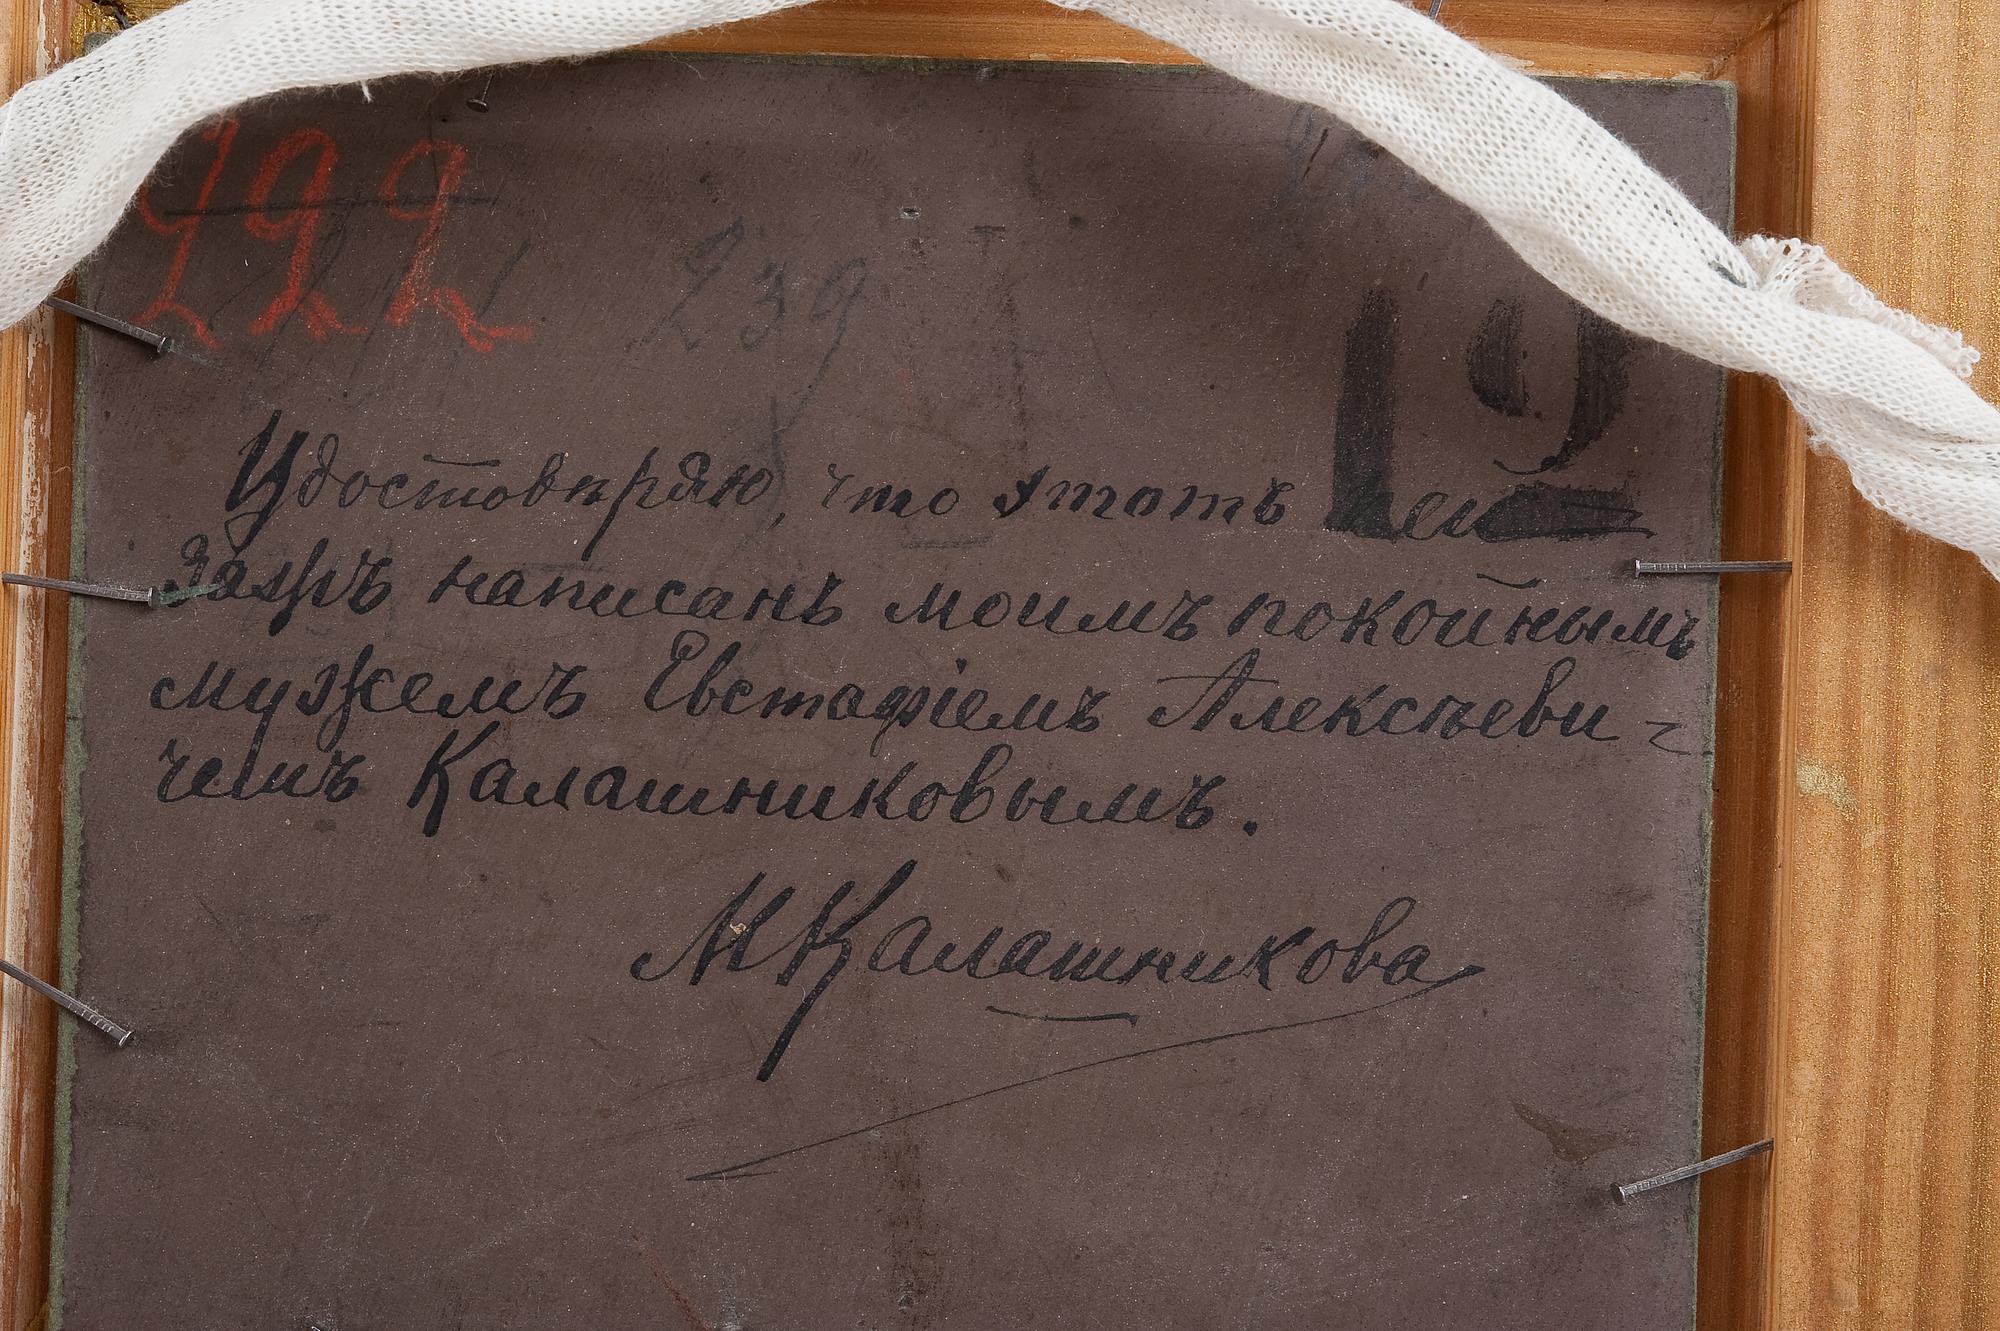 292
239
12
Удостовѣряю, что этотъ пей
зажъ написанъ моимъ покойнымъ
мужемъ Евстафіемъ Алексѣеви-
чемъ Калашниковымъ.
МКалашникова